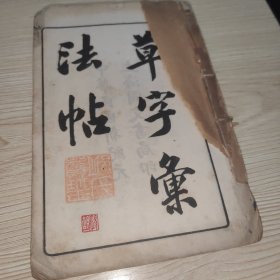 草字彙
法帖